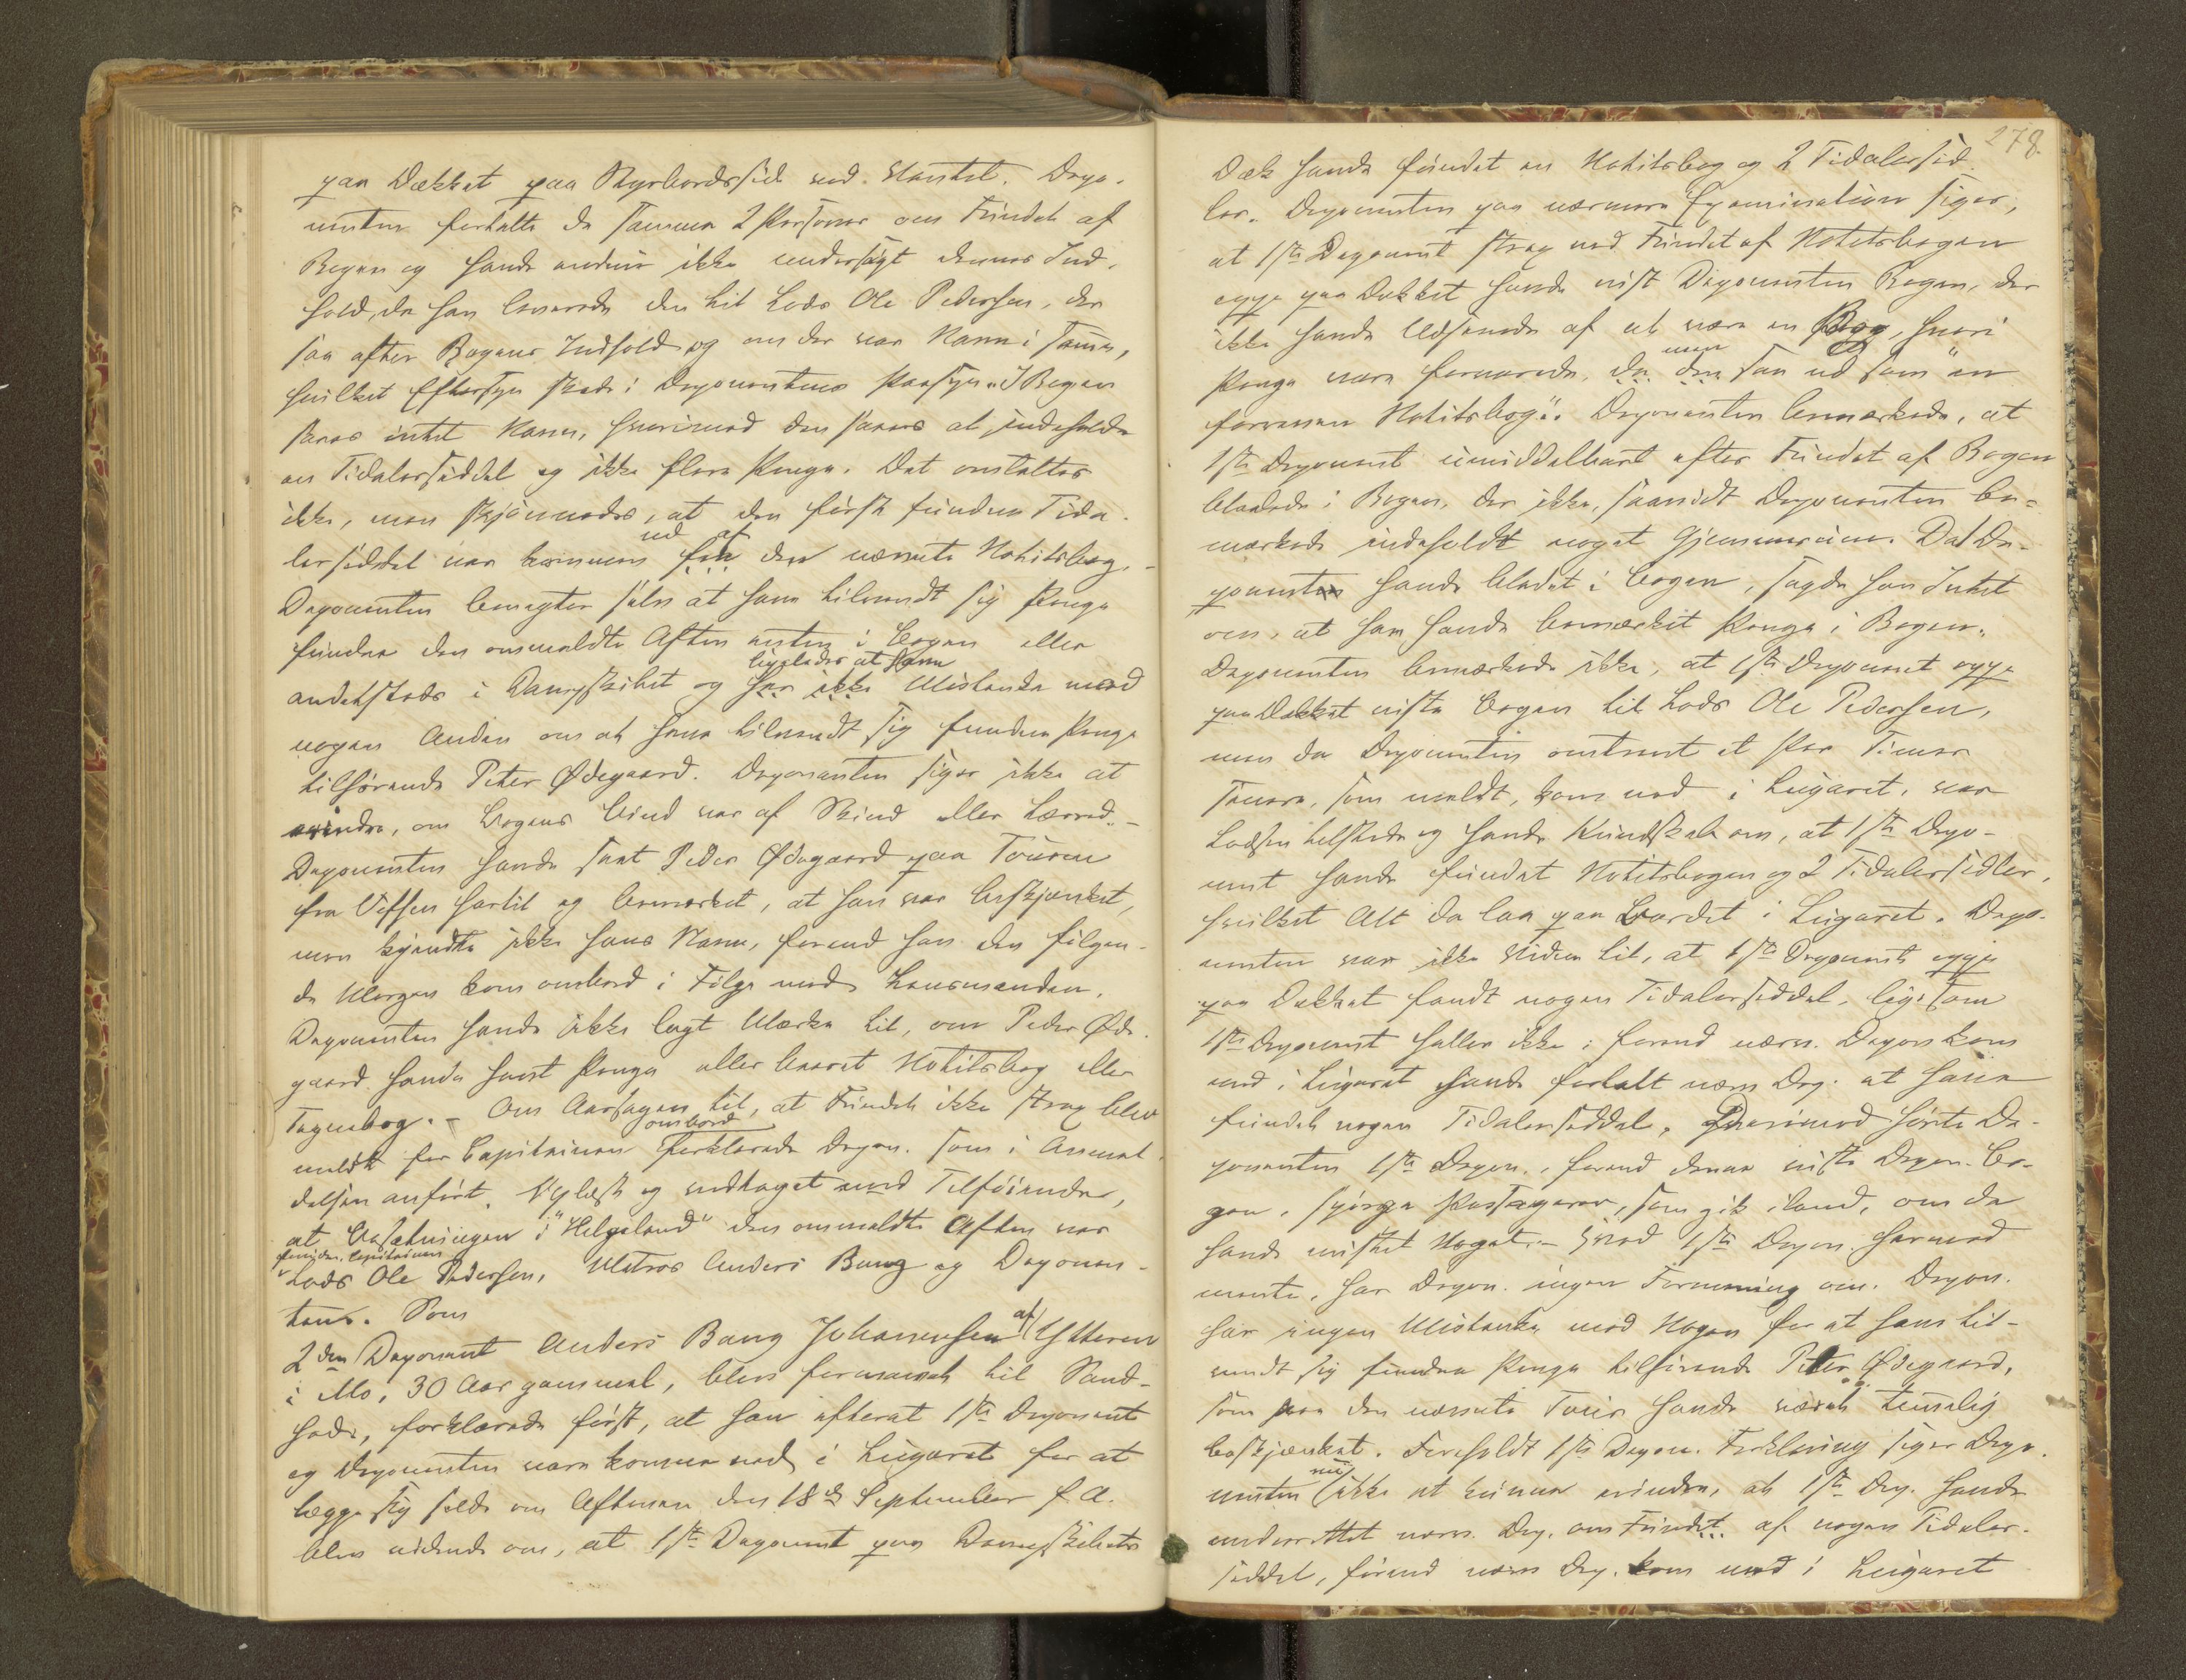 paa Dækket paa Styrbordsside ved Vantet. Depo-
nenten fortalte de samme 2 Personer om Fundet af
Bogen og havde endnu ikke undersøgt dennes Ind-
hold, da han leverede den til Lods Ole Pedersen, der
saa efter Bogens Indhold og om der var Navn i samme,
hvilket Eftersyn skede i Deponentens Paasyn. I Bogen
saaes intet Navn, hvorimod den saaes at indeholde
en Tidalerseddel og ikke flere Penge. Det omtaltes
ikke, men skjønnedes, at den først fundne Tida-
lerseddel var kommen ud af fra den nævnte Notitsbog.
Deponenten benegter selv at have tilvendt sig Penge
fundne den ommeldte Aften enten i Bogen eller
andetsteds i Dampskibet og ligeledes at have har ikke Mistanke mod
nogen Anden om at have tilvendt sig fundne Penge
tilhørende Peter Ødegaard. Deponenten siger ikke at
erindre, om Bogens Bind var af Skind eller Lærred. -
Deponenten havde seet Peder Ødegaard paa Touren
fra Vefsen hertil og bemærket, at han var beskjænket,
men kjendte ikke hans Navn, forend han den følgen-
de Morgen kom ombord i Følge med Lensmanden.
Deponenten havde ikke lagt Mærke til, om Peder Øde-
gaard havde havt Penge eller baaret Notitsbog eller
Tegnebog. - Om Aarsagen til, at Fundet ikke strax blev
meldt for Capitainen ombord forklarede Depon. som i Anmel-
delsen anført. Oplæst og vedtaget med Tilføiende,
at Besætningen i "Helgeland" den ommeldte Aften var
foruden Capitainen
Lods Ole Pedersen, Matros Anders Bang og Deponen-
ten. Som
2den Deponent Anders Bang Johannesen af Ytteren
i Mo, 30 Aar gammel, blev formanet til Sand-
hed, forklarede først, at han efterat 1ste Deponent
og Deponenten vare komne ned i Lugaret for at
lægge sig silde om Aftenen den 18de September f. A.
blev vidende om, at 1ste Deponent paa Dampskibets
278.
Dæk havde fundet en Notitsbog og 2 Tidalersed-
ler. Deponenten paa nærmere Examination siger,
at 1ste Deponent strax ved Fundet af Notitsbogen
oppe paa Dækket havde vist Deponenten Bogen, der
ikke havde Udseende af at være en Bog, hvori
Penge vare forvarede, da den men saa ud som "en
forreven Notitsbog". Deponenten bemærkede, at
1ste Deponent umiddelbart efter Fundet af Bogen
bladede i Bogen, der ikke, saavidt Deponenten be-
mærkede indeholdt noget Gjemmerum. Da De-
ponenten havde bladet i Bogen, sagde han Intet
om, at han havde bemærket Penge i Bogen.
Deponenten bemærkede ikke, at 1ste Deponent oppe
paa Dækket viste Bogen til Lods Ole Pedersen,
men da Deponenten omtrent et Par Timer
senere, som meldt, kom ned i Lugaret, var
Lodsen tilstede og havde Kundskab om, at 1ste Depo-
nent havde fundet Notitsbogen og 2 Tidalersedler,
hvilket Alt da laa paa Bordet i Lugaret. Depo-
nenten var ikke Vidne til, at 1ste Deponent oppe
paa Dækket fandt nogen Tidalerseddel, ligesom
1ste Deponent heller ikke, forend nærv. Depon kom
ned i Lugaret havde fortalt nærv. Dep. at have
fundet nogen Tidalerseddel. Derimod hørte De-
ponenten 1ste Depon., forend denne viste Depon. Bo-
gen, spørge Passagerer, som gik iland, om de
havde mistet Noget. - Hvad 1ste Depon. hermed
mente, har Depon. ingen Formening om. Depon.
har ingen Mistanke mod Nogen for at have til-
vendt sig fundne Penge tilhørende Peter Ødegaard,
som paa den nævnte Tour havde været temmelig
beskjænket. Foreholdt 1ste Depon. Forklaring siger Depo-
nenten nu ikke at kunne erindre, at 1ste Dep. havde
underrettet nærv. Dep. om Fundet af nogen Tidaler-
seddel, førend nærv Dep. kom ned i Lugaret